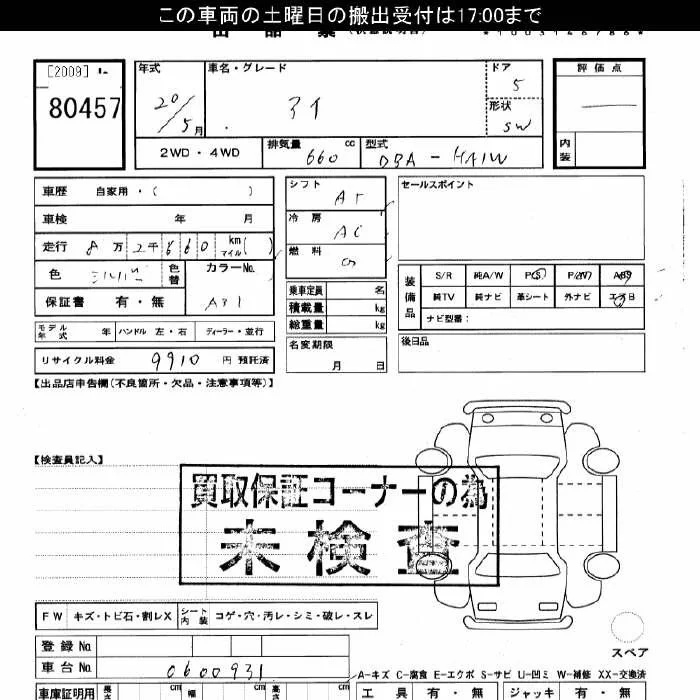 この車両の土曜日の搬出受付は17:00まで
[2009]
80457
年式
20/5月
車名・グレード
アイ
ドア
5
形状
SW
評価点
内装
2WD・4WD
排気量 660 cc
型式 DBA-HA1W
車歴 自家用・( )
車検 年 月
走行 8万2千660 km マイル( )
色 シルバー 色替
カラーNo. A31
保証書 有・無
シフト AT
冷房 AC
燃料 G
乗車定員 名
積載量 kg
総重量 kg
名変期限 月 日
セールスポイント
装備品
S/R 純A/W P/S P/W ABS
純TV 純ナビ 革シート 外ナビ エアB
ナビ型番:
後日品
モデル年式 年 ハンドル 左・右 ディーラー・並行
リサイクル料金 9910 円 預託済
【出品店申告欄(不良箇所・欠品・注意事項等)】
【検査員記入】
買取保証コーナーの為
未検査
FW キズ・トビ石・割レX シート内装 コゲ・穴・汚レ・シミ・破レ・スレ
登録No.
車台No. 0600931
スペア
A-キズ C-腐食 E-エクボ S-サビ U-凹ミ W-補修 XX-交換済
車庫証明用 長さ cm 幅 cm 高さ cm
工具 有・無 ジャッキ 有・無